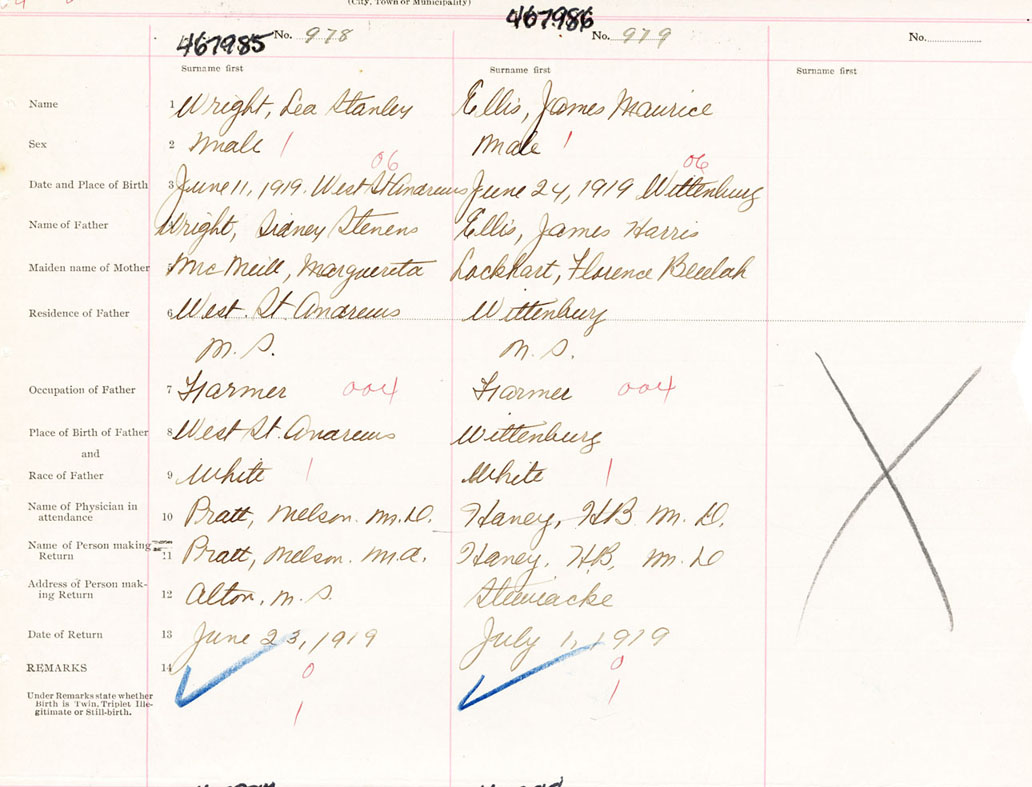 (City, Town or Municipality)
467985 No. 978 467986 No. 979 No.
Surname first Surname first Surname first
Name 1 Wright, Lea Stanley Ellis, James Maurice
Sex 2 Male 1 Male 1
06 06
Date and Place of Birth 3 June 11, 1919. West St Andrews June 24, 1919 Wittenburg
Name of Father Wright, Sidney Stevens Ellis, James Harris
Maiden name of Mother 5 McNeill, Marguereta Lockhart, Florence Beulah
Residence of Father 6 West. St. Andrews Wittenburg
N. S. N. S.
Occupation of Father 7 Farmer 004 Farmer 004
Place of Birth of Father 8 West St. Andrews Wittenburg
and
Race of Father 9 White 1 White 1
Name of Physician in
attendance 10 Pratt, Nelson. M.D. Haney, HB. M. D.
Name of Person making
Return 11 Pratt, Nelson. M.D. Haney, H.B. M. D
Address of Person mak-
ing Return 12 Alton, N. S. Stewiacke
Date of Return 13 June 23, 1919 July 1, 1919
REMARKS 14 0 0
Under Remarks state whether
Birth is Twin, Triplet Ille-
gitimate or Still-birth. 1 1